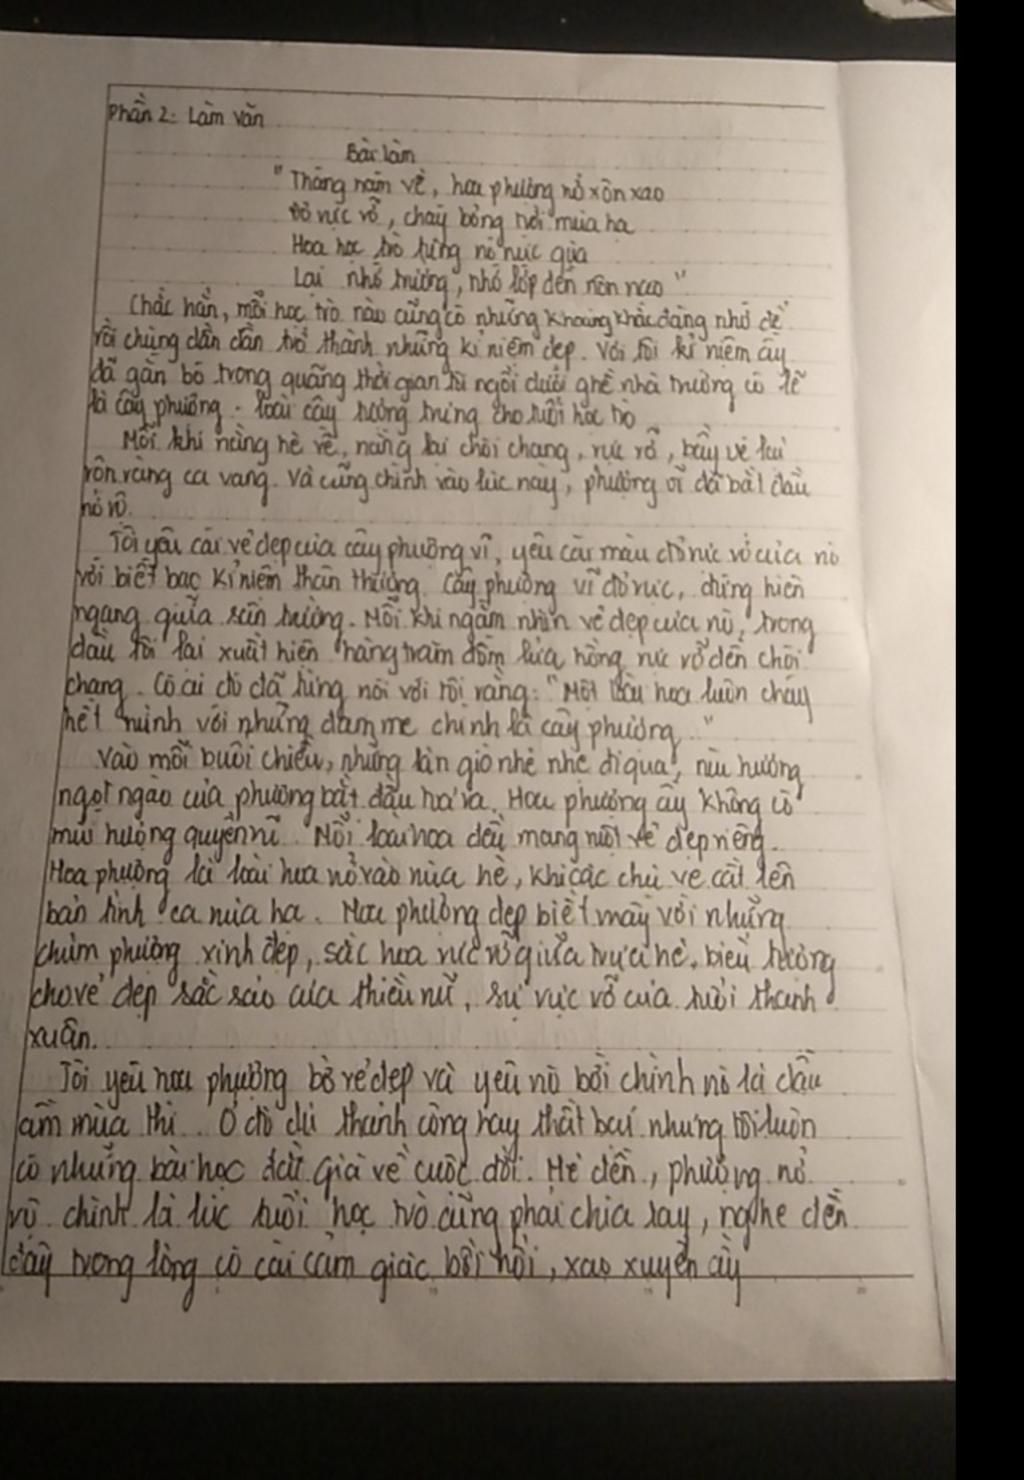 Phần 2: Làm văn
Bài làm
"Tháng năm về, hoa phượng nở xôn xao
Đỏ rực rỡ, cháy bỏng trời mùa hạ
Hoa học trò từng nở rực qua
Lại nhớ trường, nhớ lớp đến nôn nao"
Chắc hẳn, mỗi học trò nào cũng có những khoảng khắc đáng nhớ để
rồi chúng dần dần trở thành những kỉ niệm đẹp. Với tôi kỉ niệm ấy
đã gắn bó trong quãng thời gian từ ngồi dưới ghế nhà trường có lẽ
là cây phượng - loài cây tượng trưng cho tuổi học trò
Mỗi khi nắng hè về, nắng lại chói chang, rực rỡ, bầy ve lại
rộn ràng ca vang. Và cũng chính vào lúc này, phượng vĩ đã bắt đầu
nở rộ.
Tôi yêu cái vẻ đẹp của cây phượng vĩ, yêu cái màu đỏ rực rỡ của nó
với biết bao kỉ niệm thân thương. Cây phượng vĩ đỏ rực, đứng hiên
ngang giữa sân trường. Mỗi khi ngắm nhìn vẻ đẹp của nó, trong
đầu tôi lại xuất hiện hàng trăm đốm lửa hồng rực rỡ đến chói
chang. Có ai đó đã từng nói với tôi rằng: "Một loài hoa luôn cháy
hết mình với những đam mê chính là cây phượng."
Vào mỗi buổi chiều, những làn gió nhè nhẹ đi qua, mùi hương
ngọt ngào của phượng bắt đầu tỏa ra. Hoa phượng ấy không có
mùi hương quyến rũ. Mỗi loài hoa đều mang một vẻ đẹp riêng.
Hoa phượng là loài hoa nở vào mùa hè, khi các chú ve cất lên
bản tình ca mùa hạ. Hoa phượng đẹp biết mấy với những
chùm phượng xinh đẹp, sắc hoa rực rỡ giữa trưa hè, biểu tượng
cho vẻ đẹp sắc sảo của thiếu nữ, sự vực vỡ của tuổi thanh
xuân.
Tôi yêu hoa phượng bở vẻ đẹp và yêu nó bởi chính nó là dấu
ấm mùa thi. Ở đó dù thành công hay thất bại nhưng tôi luôn
có những bài học đắt giá về cuộc đời. Hè đến, phượng nở
rộ chính là lúc tuổi học trò cũng phải chia xay, nghe đến
đây trong lòng có cái cảm giác bồi hồi, xao xuyến ấy